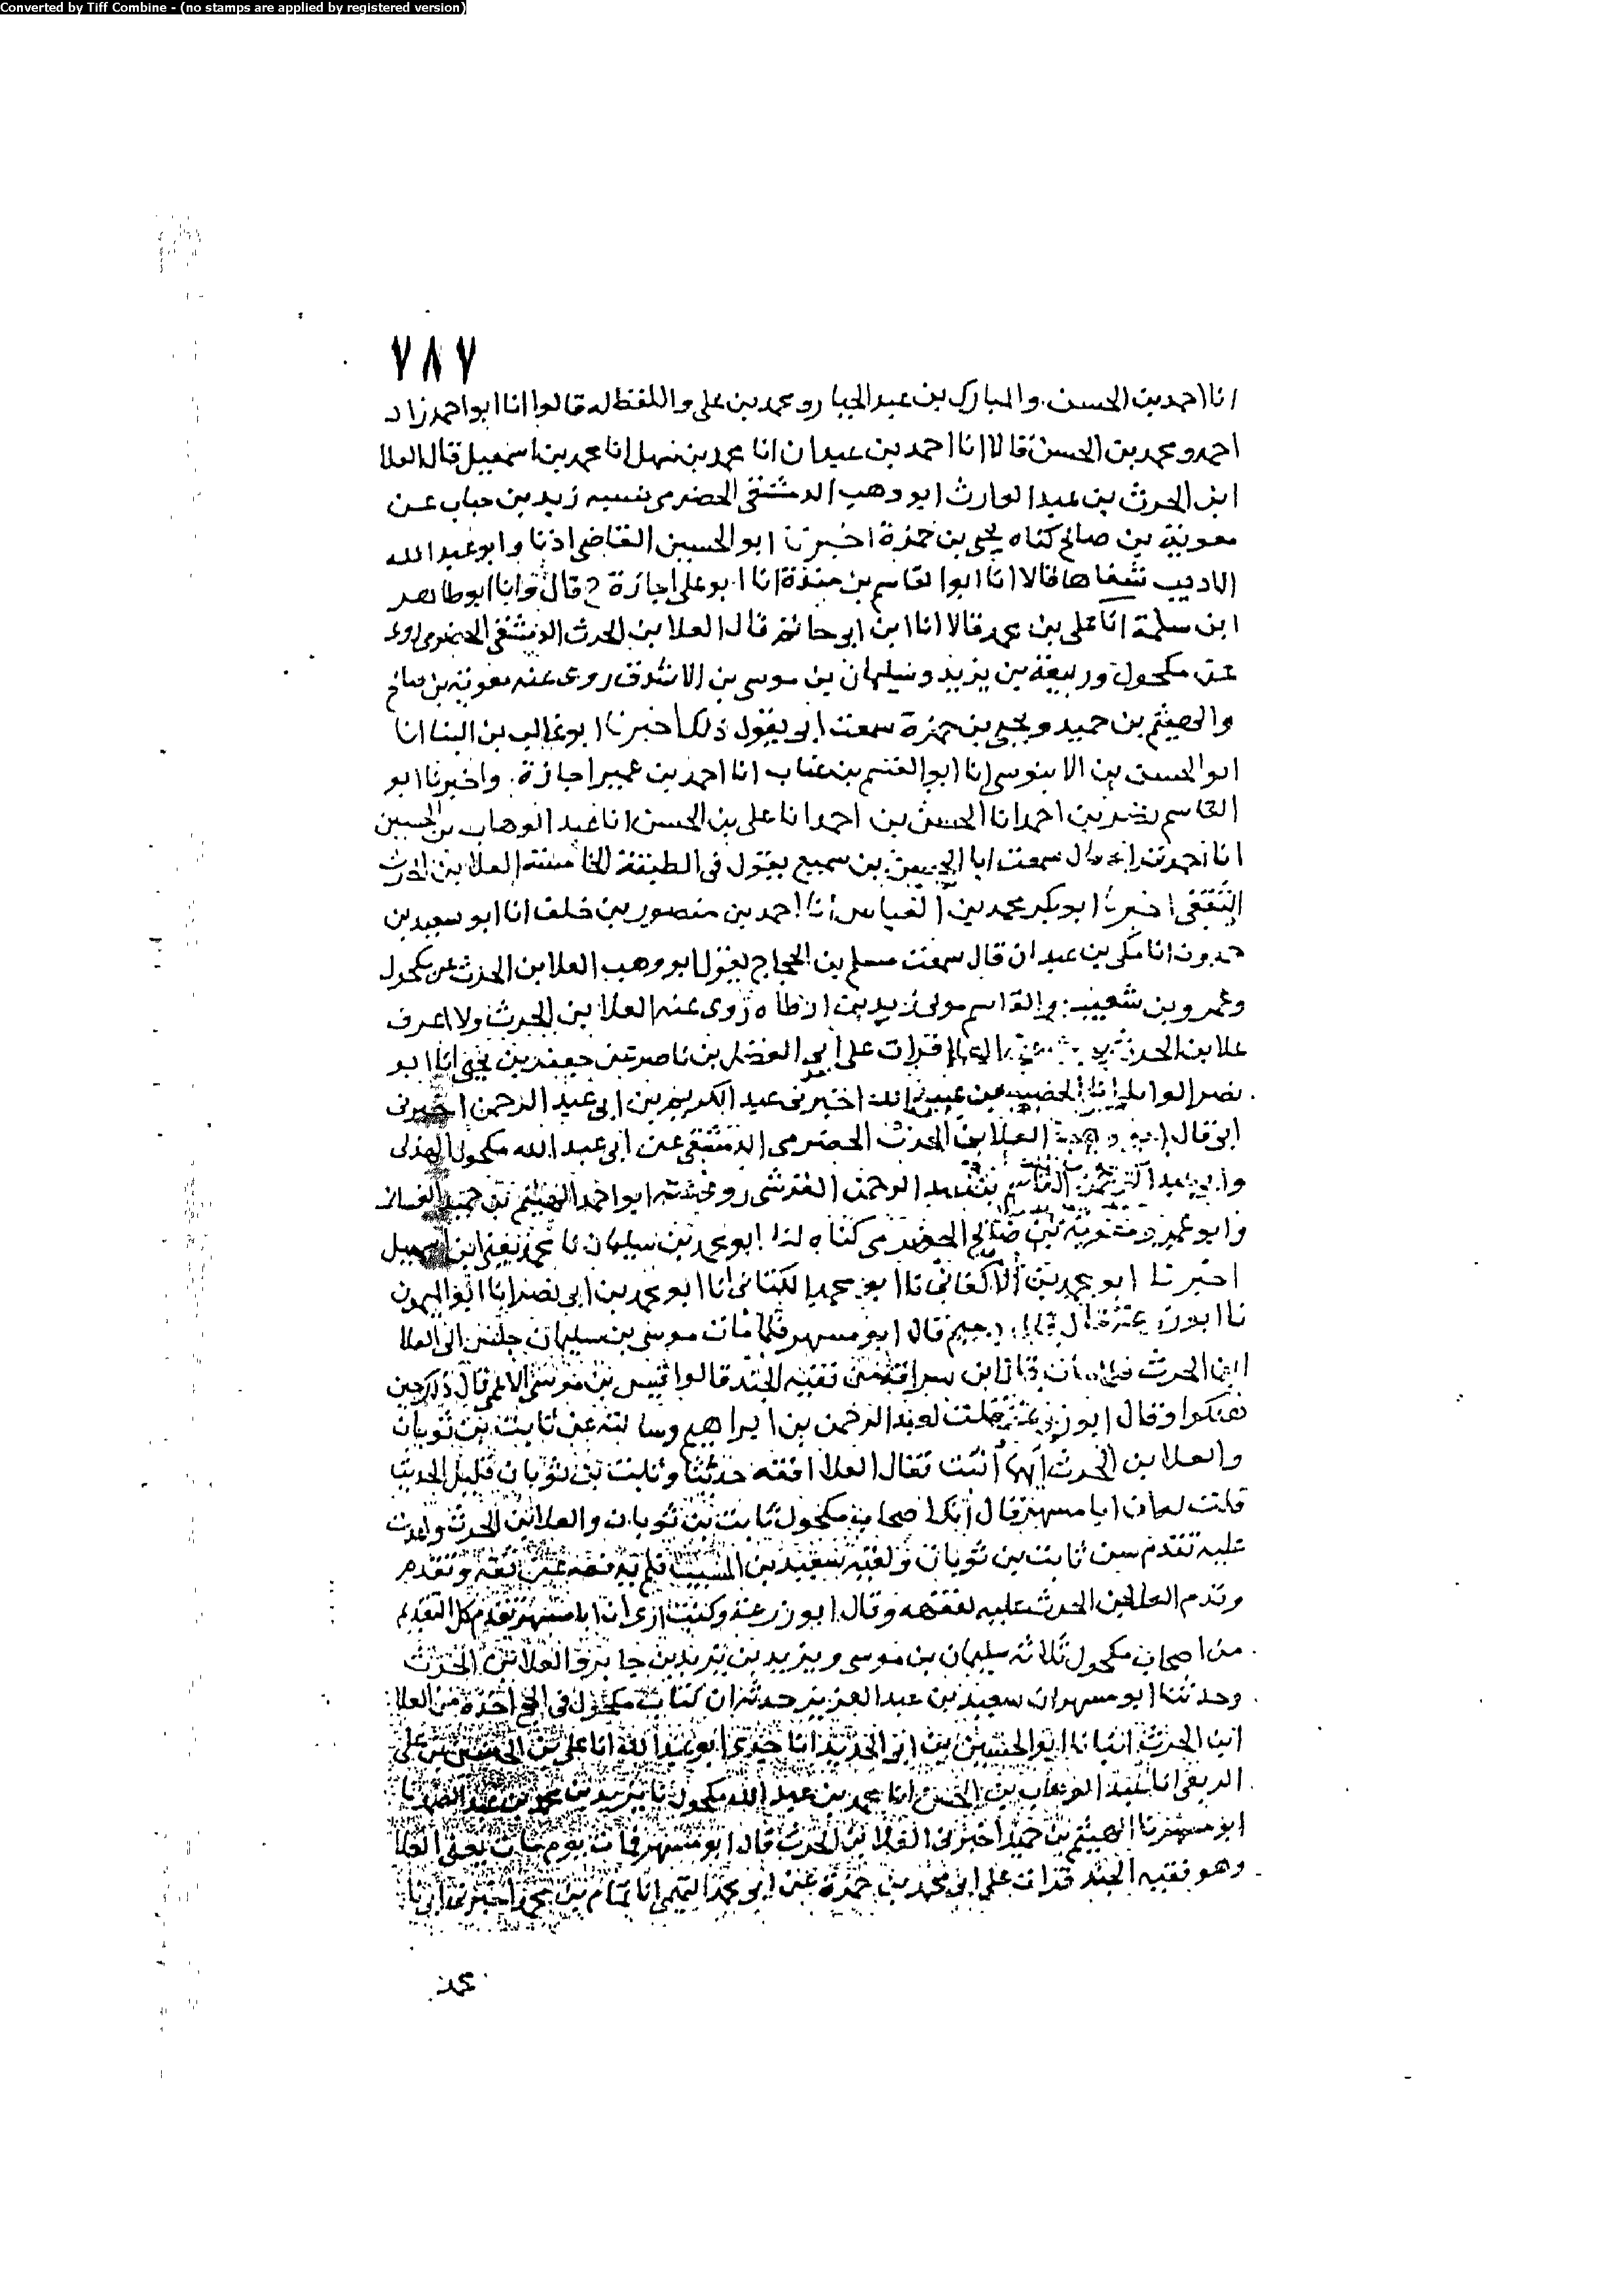 Converted by Tiff Combine - (no stamps are applied by registered version)
٧٨٧
انا احمد بن الحسن والمبارك بن عبد الجبار ومحمد بن على واللفظ له قالوا انا ابو احمد زاد
احمد ومحمد بن الحسن قالا انا احمد بن عبدان انا محمد بن سهل انا محمد بن اسمعيل قال العلا
ابن الحرث بن عبد الوارث ابو وهب الدمشقى الحضرمى نسبه زيد بن حباب عن
معوية بن صالح كناه يحيى بن حمزة اخبرنا ابو الحسين القاضى اذنا وابو عبد الله
الاديب شفاها قالا انا ابوا لقاسم بن مندة انا ابو على اجازة ح قال وانا ابو طاهر
ابن سلمة انا على بن محمد قالا انا ابن ابى حاتم قال العلا بن الحرث الدمشقى الحضرمى روى
عن مكحول وربيعة بن يزيد وسليمان بن موسى بن الاشدق روى عنه معوية بن صالح
والهيثم بن حميد ويحيى بن حمزة سمعت ابى يقول ذلك اخبرنا ابو غالب بن البنا انا
ابو الحسن بن الابنوسى انا ابو القسم بن عتاب انا احمد بن عمير اجازة واخبرنا ابو
القاسم نصر بن احمد انا الحسن بن احمد انا على بن الحسن انا عبد الوهاب بن الحسين
انا احمد قال سمعت ابا الحسن بن سميع يقول فى الطبقة الخامسة العلا بن الحرث
اخبرنا ابو بكر محمد بن العباس انا احمد بن منصور بن خلف انا ابو سعيد بن
حمدون انا مكى بن عبدان قال سمعت مسلم بن الحجاج يقول ابو وهب العلا بن الحرث عن مكحول
وعمرو بن شعيب والقاسم مولى يزيد روى عنه العلا بن الحرث ولا اعرف
علا بن الحرث قرات على ابى الفضل بن ناصر عن جعفر بن يحيى انا ابو
نصر الوايلى انا الخصيب بن عبد الله اخبرنى عبد الكريم بن ابى عبد الرحمن اخبرنى
ابى قال ابو وهب العلا بن الحرث الحضرمى الدمشقى عن ابى عبد الله مكحول الهذلى
وابى عبد الرحمن القاسم بن عبد الرحمن القرشى ابو احمد الهيثم بن حميد الغسانى
وابو عمرو معوية بن صالح الحضرمى كناه لنا ابو محمد بن سليمان نا محمد يعنى ابن اسمعيل
اخبرنا ابو محمد بن الاكفانى نا ابو محمد الكتانى انا ابو محمد بن ابى نصر انا ابو الميمون
نا ابو زرعة قال دحيم قال ابو مسهر فلما مات سليمان جلسنا الى العلا
ابن الحرث قال ابن سراقة من فقيه الجند قالوا قيس بن موسى قال ذلك حين
وقال ابو زرعة قلت لعبد الرحمن بن ابراهيم وسالته عن ثابت بن ثوبان
والعلا بن الحرث ايهما اثبت فقال العلا افقه حديثا وثابت بن ثوبان قليل الحديث
قلت له ان ابا مسهر قال انبل اصحاب مكحول ثابت بن ثوبان والعلا بن الحرث واعدت
عليه تقدم سن ثابت بن ثوبان ولقيه سعيد بن المسيب فلم يدفعه عن ثقة وتقدم
وقدم العلا بن الحرث عليه لفقهه وقال ابو زرعة وكنت ارى ان ابا مسهر تقدم كل التقديم
من اصحاب مكحول ثلاثة سليمان بن موسى ويزيد بن يزيد بن جابر والعلا بن الحرث
وحدثنا ابو مسهر ان سعيد بن عبد العزيز حدثه ان كتاب مكحول فى الحج اخذه من العلا
ابن الحرث انبانا ابو الحسين بن ابى الحديد انا جدى ابو عبد الله انا على بن الحسين بن على
الربعى انا عبد الوهاب بن الحسن انا محمد بن عبد الله مكحول نا يزيد بن محمد بن عبد الصمد نا
ابو مسهر نا الهيثم بن حميد اخبرنى العلا بن الحرث قال ابو مسهر فمات يوم مات يعنى العلا
وهو فقيه الجند قرات على ابى محمد بن حمزة عن ابى محمد التميمى انا تمام بن محمد اخبرنى ابى نا
محمد